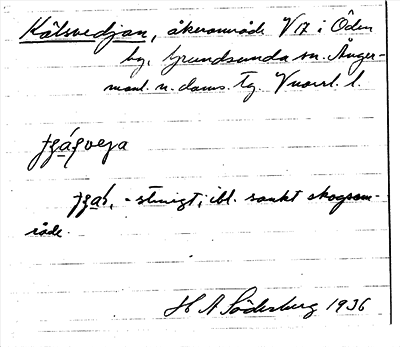 Kälsvedjan, åkerområde V 17 i Öden
by, Grundsunda sn. Ånger-
manl. n. doms. tg. Vnorrl. l.
- stenigt, ibl. sankt skogsom-
råde.
H A Söderberg 1936